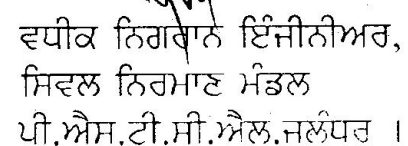 ਵਧੀਕ ਨਿਗਰਾਨ ਇੰਜੀਨੀਅਰ,
ਸਿਵਲ ਨਿਰਮਾਣ ਮੰਡਲ
ਪੀ.ਐਸ.ਟੀ.ਸੀ.ਐਲ.ਜਲੰਧਰ ।